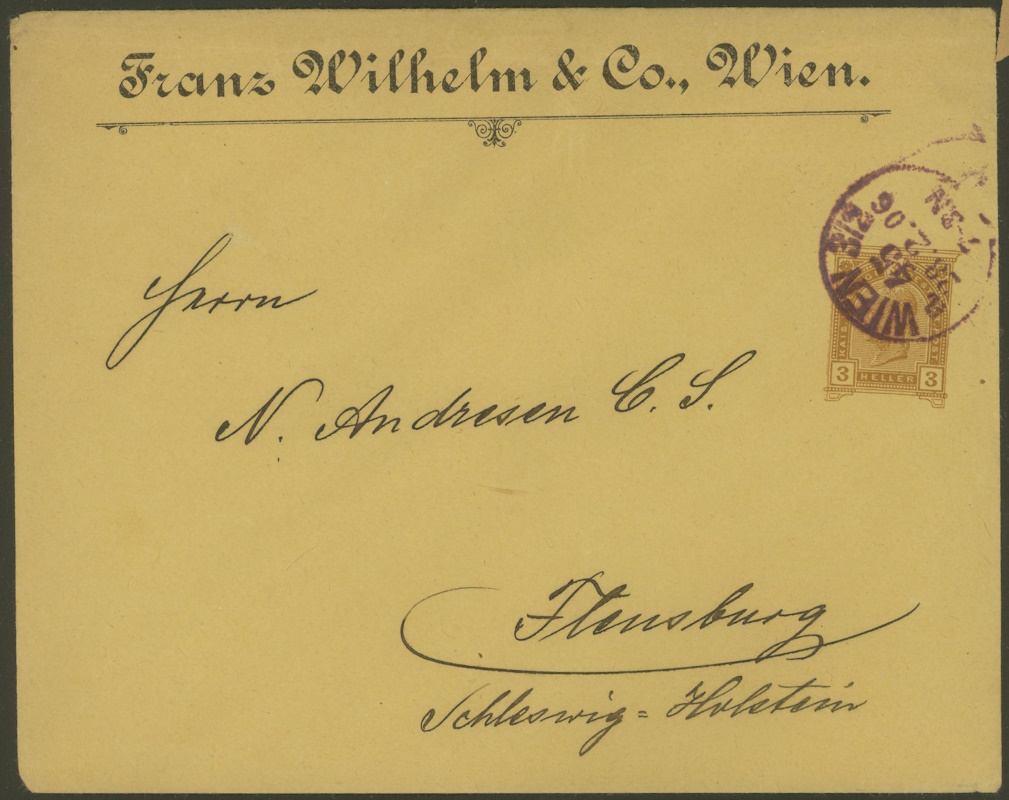 Franz Wilhelm & Co., Wien.
Herrn
N. Andresen C. S.
Flensburg
Schleswig=Holstein
WIEN
3 HELLER 3